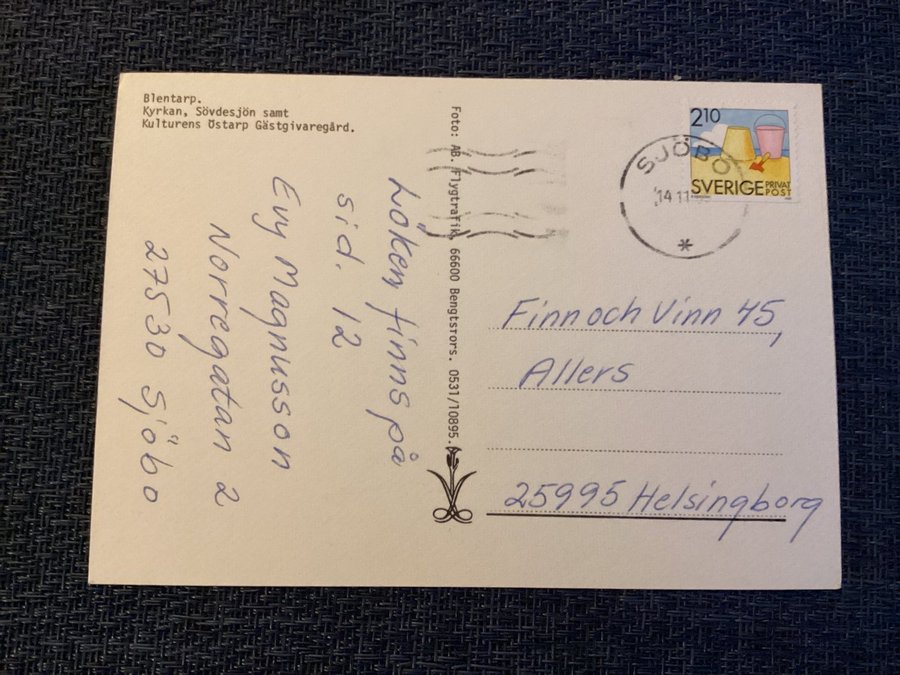 Blentarp.
Kyrkan, Sövdesjön samt
Kulturens Östarp Gästgivaregård.
Löken finns på
sid. 12
Evy Magnusson
Norregatan 2
27530 Sjöbo
Foto: AB. Flygtrafik, 66600 Bengtsfors. 0531/10895.
2 10
SVERIGE PRIVAT POST
SJÖBO
14 11
*
Finn och Vinn 45,
Allers
25995 Helsingborg